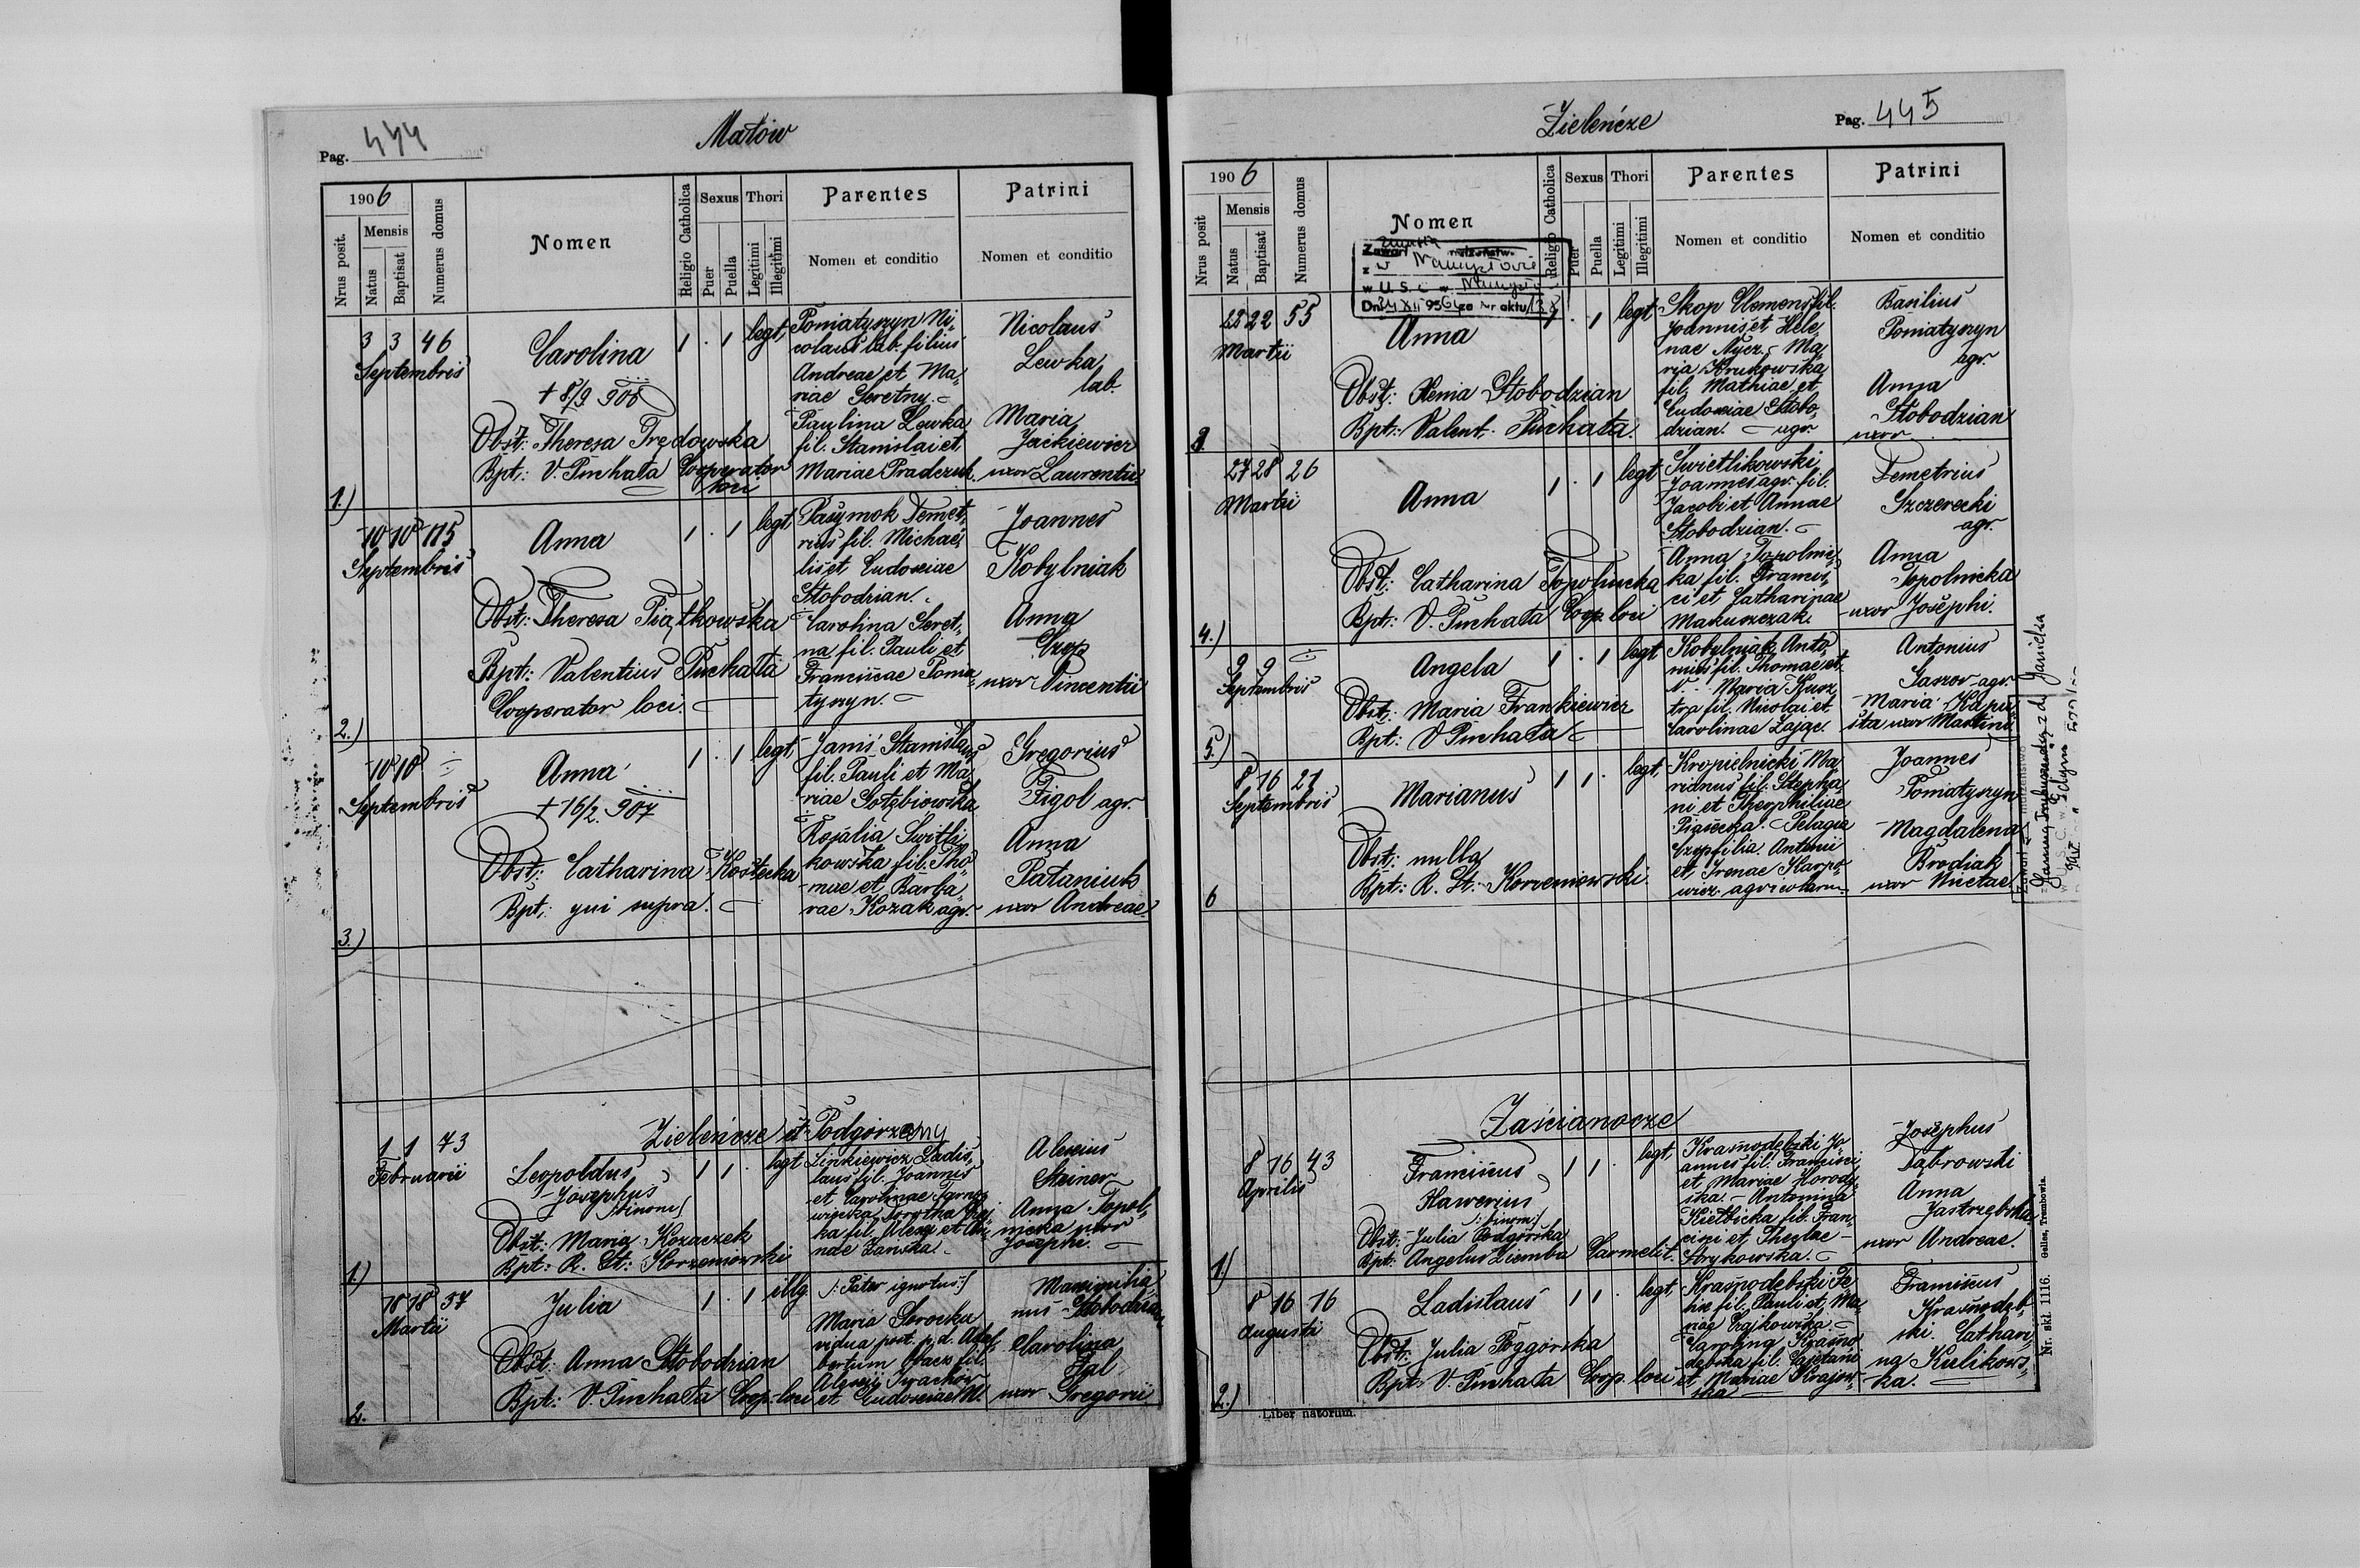 Pag. 444
Małów
1906
Nrus posit.
Mensis
Natus
Baptisat
Numerus domus
Nomen
Religio Catholica
Sexus
Puer
Puella
Thori
Legitimi
Illegitimi
Parentes
Nomen et conditio
Patrini
Nomen et conditio
1.)
3 3 46
Septembris
Carolina
+ 8/9 906
Obst: Theresa Trędowska
Bpt: V. Puchała Cooperator
loci
1 . 1 legt
Poniatyszyn Ni-
colaus lab. filius
Andreae et Ma-
riae Seretny.
Paulina Lewka
fil. Stanislai et
Mariae Praderuk.
Nicolaus
Lewka
lab.
Maria
Jackiewicz
uxor Laurentii
2.)
10 10 115
Septembris
Anna
Obst: Theresa Piątkowska
Bpt: Valentius Puchała
Cooperator loci.
1 . 1 legt
Pasymok Demet-
rius fil. Michae-
lis et Eudoxiae
Słobodzian.
Carolina Seret-
na fil. Pauli et
Franciscae Ponia-
tyszyn.
Joannes
Kobylniak
Anna
Czop
uxor Vincentii
3.)
10 10
Septembris
Anna
+ 16/2. 907
Obst: Catharina Kostecka
Bpt: qui supra.
1 . 1 legt
Janis Stanislaus
fil. Pauli et Ma-
riae Gołębiowska
Rosalia Switli-
kowska fil. Tho-
mae et Barba-
rae Kozak agr.
Gregorius
Figol agr.
Anna
Pataniuk
uxor Andreae
Zieleńcze et Podgórzany
1.)
1 1 73
Februarii
Leopoldus
Josephus
/binom/
Obst: Maria Kozaczek
Bpt: R. St: Korzeniowski
1 1 . legt
Linkiewicz Ladis-
laus fil. Joannis
et Carolinae
ka fil. Alexii et An-
nae
Alexius
Steiner
Anna Topol-
nicka uxor
Josephi.
2.
18 18 37
Martii
Julia
Obst: Anna Słobodzian
Bpt: V. Puchała Coop. loci
1 . 1 illg.
/: Pater ignotus :/
Maria Sorocka
vidua post. p. d. Adal-
bertum fil.
Alexii
et Eudoxiae M.
Maximilia-
nus Słobodzian
Carolina
Gal
uxor Gregorii
Zieleńcze
Pag. 445
1906
Nrus posit
Mensis
Natus
Baptisat
Numerus domus
Nomen
Religio Catholica
Sexus
Puer
Puella
Thori
Legitimi
Illegitimi
Parentes
Nomen et conditio
Patrini
Nomen et conditio
w U.S.C. w
3
22 22 55
Martii
Anna
Obst: Xenia Słobodzian
Bpt: Valent. Puchała.
1 . 1 legt
Skop Clemens fil.
Joannis et Hele-
nae Nycz. Ma-
ria Krukowska
fil. Mathiae et
Eudoxiae Słobo-
dzian. agr
Basilius
Poniatyszyn
agr.
Anna
Słobodzian
uxor
4.)
27 28 26
Martii
Anna
Obst: Catharina Topolnicka
Bpt: V. Puchała Coop. loci
1 . 1 legt
Swietlikowski
Joannes agr. fil.
Jacobi et Annae
Słobodzian.
Anna Topolnic-
ka fil. Francis-
ci et Catharinae
Makuszczak.
Demetrius
Szczerecki
agr.
Anna
Topolnicka
uxor Josephi.
5.)
9 9
Septembris
Angela
Obst: Maria Frankiewicz
Bpt: V Puchała
1 . 1 legt
Kobylniak Anto-
nius fil. Thomae et
N. Maria Kusz-
tra fil. Nicolai et
Carolinae Zając.
Antonius
Saszor agr.
Maria Kapu-
sta uxor Martini
6
8 16 21
Septembris
Marianus
Obst: nulla
Bpt: R. St. Korzeniowski.
1 1 . legt.
Kropielnicki Ma-
rianus fil. Stepha-
ni et Theophiliae
Piasecka. Pelagia
Czop filia Antonii
et Irenae Karpo-
wicz agricolarum
Joannes
Poniatyszyn
Magdalena
Brodiak
uxor Nicetae
Zaścianocze
1)
8 16 43
Aprilis
Franciscus
Xawerius
/: binom :/
Obst: Julia Podgórska
Bpt: Angelus Ziemba Carmelit.
1 1 . legt
Krasnodębski Jo-
annes fil. Francisci
et Mariae Horody-
ska. Antonina
Kiełbicka fil. Fran-
cisci et Theclae
Strykowska.
Josephus
Dąbrowski
Anna
Jastrzębska
uxor Andreae.
2.)
8 16 16
Augusti
Ladislaus
Obst: Julia Poggórska
Bpt: V. Puchała Coop. loci
1 1 . legt
Krasnodębski Fe-
lix fil. Pauli et Ma-
riae Czajkowska
Carolina Krasno-
dębska fil. Cajetani
et Mariae Krajew-
ska
Franciscus
Krasnodęb-
ski. Cathari-
na Kulikows-
ka.
Liber natorum.
Nr. skl. 1116. Galles, Trembowla.